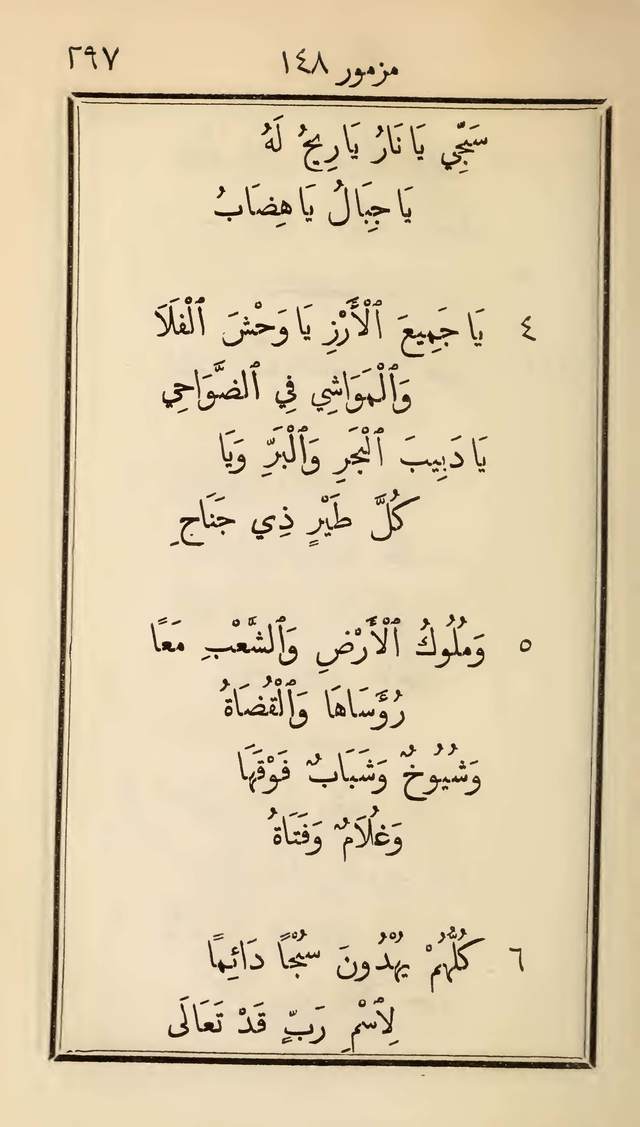 مزمور ١٤٨ ٢٩٧
سَبِّحِي يَا نَارُ يَا رِيحُ لَهُ
يَا جِبَالُ يَا هِضَابُ
٤ يَا جَمِيعَ ٱلْأَرْزِ يَا وَحْشَ ٱلْفَلَا
وَٱلْمَوَاشِي فِي ٱلضَّوَاحِي
يَا دَبِيبَ ٱلْبَحْرِ وَٱلْبَرِّ وَيَا
كُلَّ طَيْرٍ ذِي جَنَاحِ
٥ وَمُلُوكُ ٱلْأَرْضِ وَٱلشَّعْبِ مَعًا
رُؤَسَاهَا وَٱلْقُضَاةُ
وَشُيُوخٌ وَشَبَابٌ فَوْقَهَا
وَغُلَامٌ وَفَتَاةُ
٦ كُلُّهُمْ يُهْدُونَ سُبْحًا دَائِمًا
لِٱسْمِ رَبٍّ قَدْ تَعَالَى